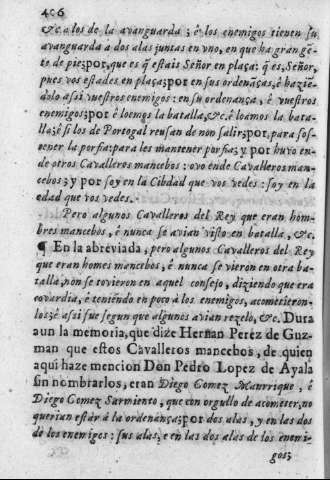 406
&c. a los de la avanguarda; é los enemigos tienen su
avanguarda a dos alas juntas en vno, en que ha gran gē-
te de piez; por, que es q̄ estais Señor en plaça: q̄ es, Señor,
pues vos estades en plaça; por en sus ordenāças, é haziē-
dolo assi vuestros enemigos: en su ordenança, é vuestros
enemigos; por é loemos la batalla, &c. é loamos la bata-
lla; é si los de Portogal reusan de non salir; por, para sos-
tener la porfia: para les mantener porfia; y por huvo en-
de otros Cavalleros mancebos: ovo ende Cavalleros man-
cebos; y por soy en la Cibdad que vos vedes: soy en la
edad que vos vedes.
Pero algunos Cavalleros del Rey que eran hom-
bres mancebos, é nunca se avian visto en batalla, &c.
¶ En la abreviada, pero algunos Cavalleros del Rey
que eran homes mancebos, é nunca se vieron en otra ba-
talla, nōn se tovieron en aquel consejo, diziendo que era
covardia, é teniēdo en poco à los enemigos, acometieron-
los; é assi fue segun que algunos avian rezelo, &c. Dura
aun la memoria, que dize Hernan Perez de Guz-
man que estos Cavalleros mancebos, de quien
aqui haze mencion Don Pedro Lopez de Ayala
sin nombrarlos, eran Diego Gomez Manrrique, é
Diego Gomez Sarmiento, que con orgullo de acometer, no
querian estar à la ordenāça; por dos alas, y en las dos
de los enemigos: sus alas, e en las dos alas de los enemi-
gos;